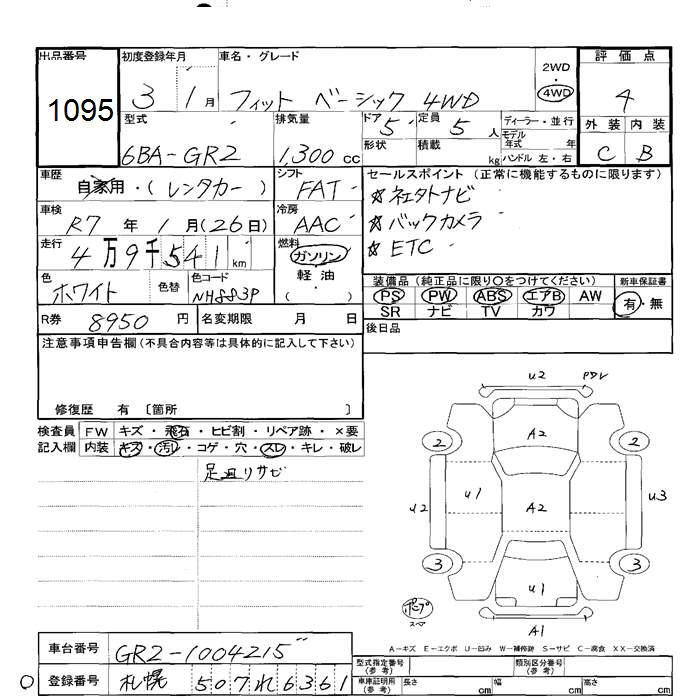 出品番号 初度登録年月 車名・グレード 評価点
1095 3 1月 フィット ベーシック 4WD 2WD・4WD 4
型式 排気量 ドア 5 定員 5人 ディーラー・並行 外装 内装
6BA-GR2 1,300cc 形状 積載 kg モデル年式 年 C B
ハンドル 左・右
車歴 自家用・(レンタカー) シフト FAT セールスポイント(正常に機能するものに限ります)
☆社外ナビ
車検 R7年1月(26日) 冷房 AAC ☆バックカメラ
走行 4万9千541km 燃料 ガソリン ☆ETC
軽油
( )
色 ホワイト 色替 色コード NH883P 装備品(純正品に限り○をつけてください) 新車保証書
PS PW ABS エアB AW 有・無
R券 8950円 名変期限 月 日 SR ナビ TV カワ
後日品
注意事項申告欄(不具合内容等は具体的に記入して下さい)
修復歴 有 〔箇所 〕
検査員 FW キズ・飛石・ヒビ割・リペア跡・×要
記入欄 内装 キズ・汚レ・コゲ・穴・スレ・キレ・破レ
足廻りサビ
U2
A2
2 2
U2 U1 A2 U3
3 3
U1
A1
A-キズ E-エクボ U-凹み W-補修跡 S-サビ C-腐食 XX-交換済
車台番号 GR2-1004215 型式指定番号(参考) 類別区分番号(参考)
登録番号 札幌 507れ6361 車庫証明用(参考) 長さ cm 幅 cm 高さ cm